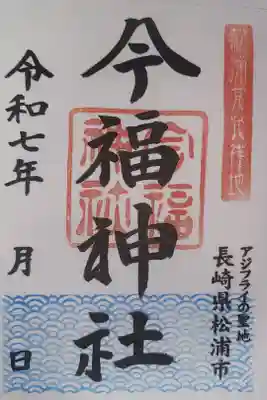 今福神社
令和七年 月 日
アジフライの聖地
長崎県松浦市
今福神社